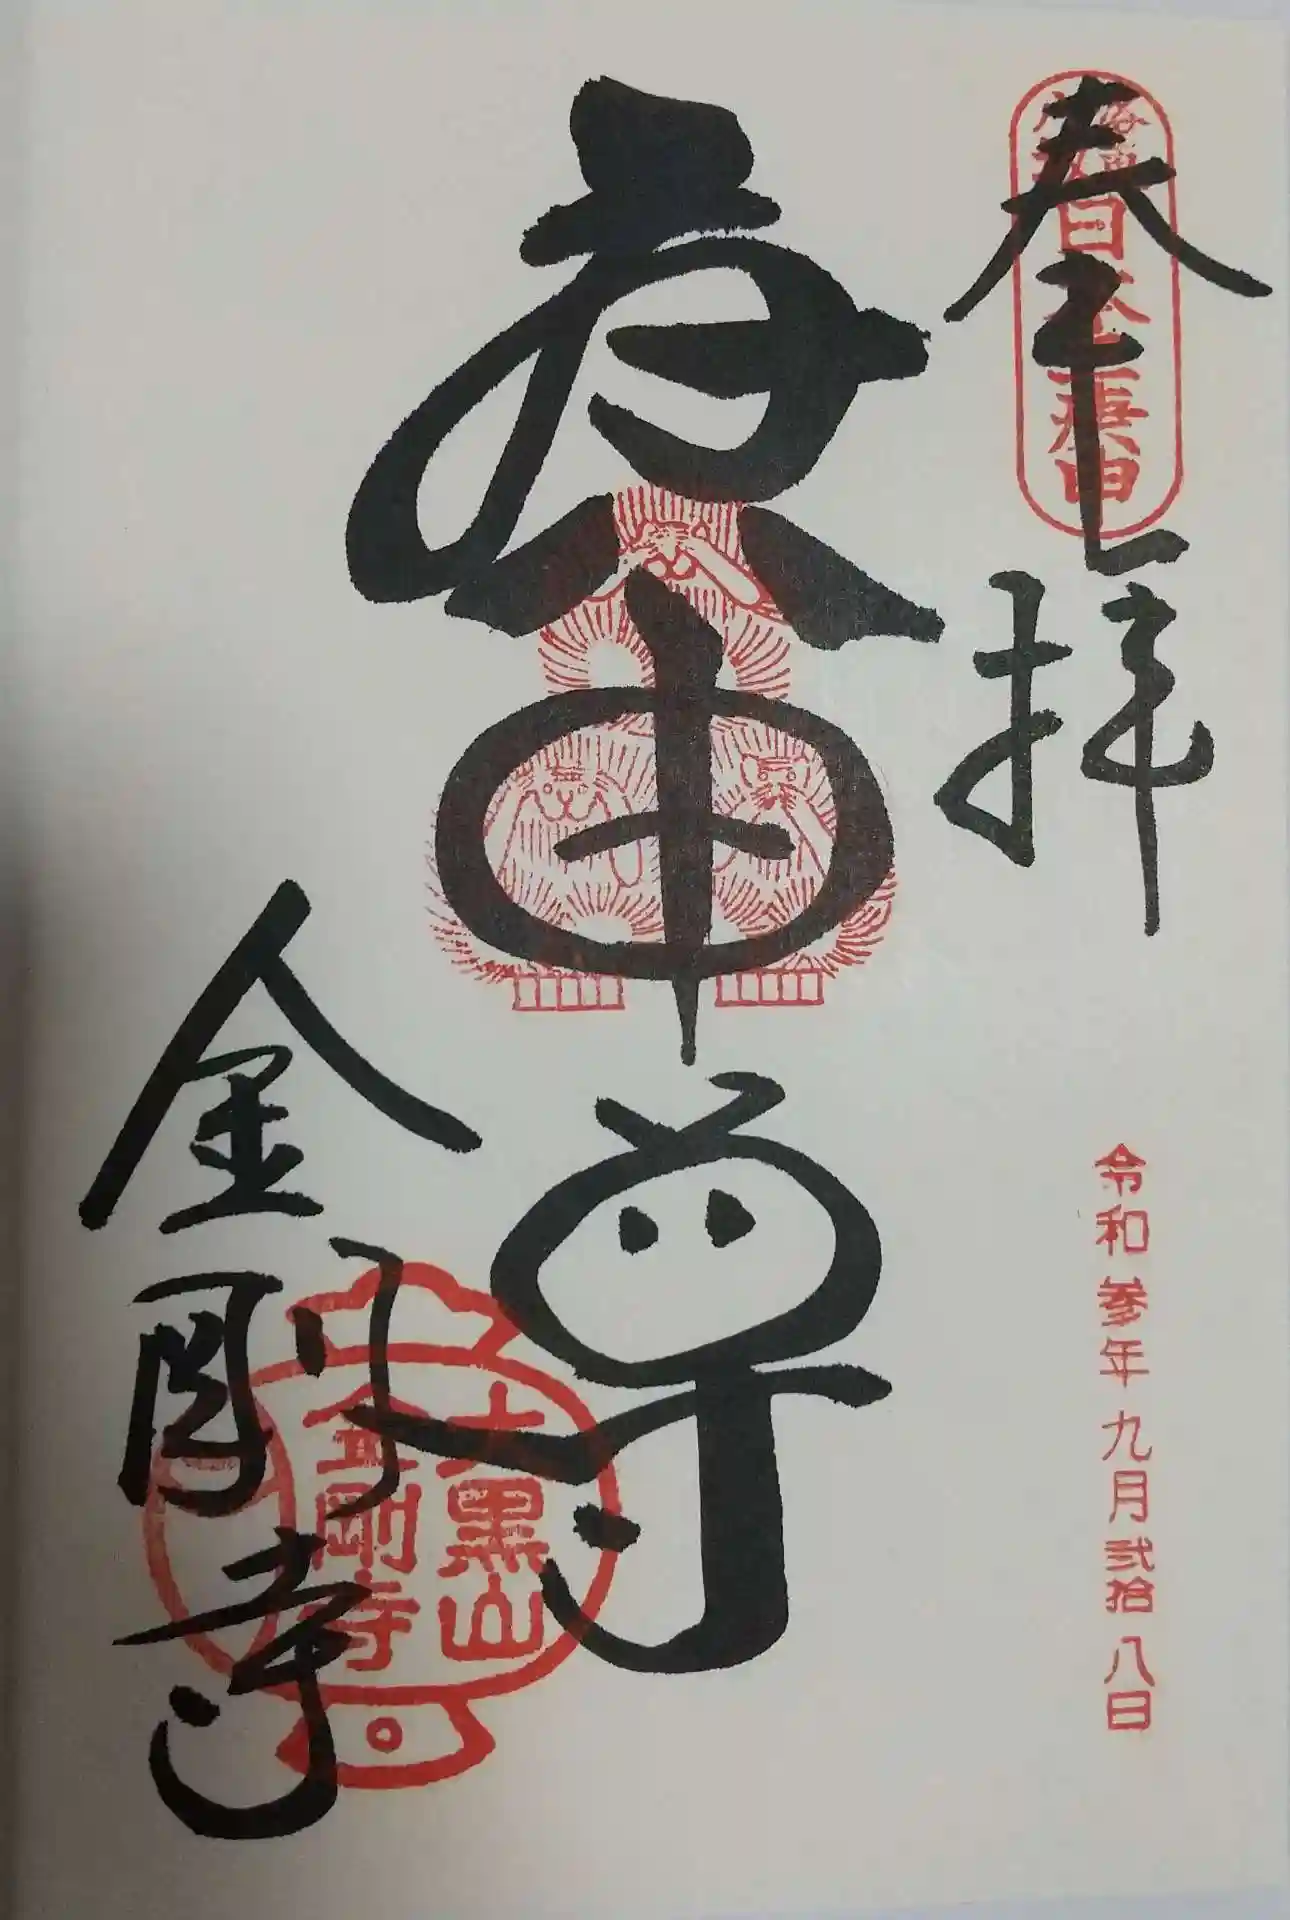 奉拝
令和参年九月弐拾八日
庚申尊
大黒山
金剛寺
金剛寺